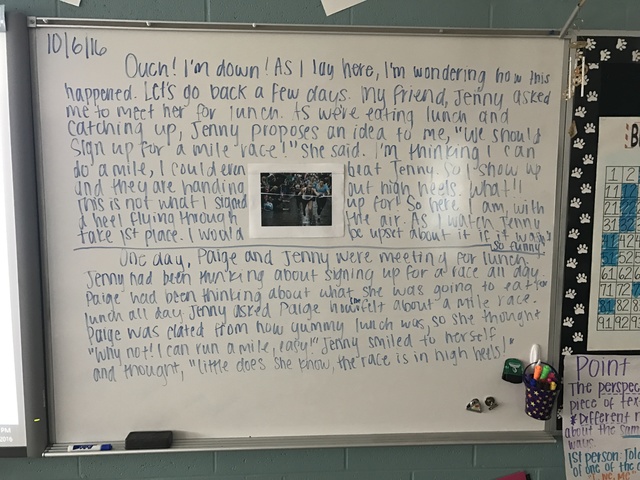 10/6/16
Ouch! I'm down! As I lay here, I'm wondering how this
happened. Let's go back a few days. My friend, Jenny asked
me to meet her for lunch. As we're eating lunch and
catching up, Jenny proposes an idea to me, "We should
sign up for a mile race!" She said. I'm thinking I can
do a mile, I could even beat Jenny. So I show up
and they are handing out high heels. What!!
This is not what I signed up for! So here I am, with
a heel flying through the air. As I watch Jenny
take 1st place. I would be upset about it if it wasn't
so funny.
One day, Paige and Jenny were meeting for lunch.
Jenny had been thinking about signing up for a race all day.
Paige had been thinking about what she was going to eat for
lunch all day. Jenny asked Paige how felt about a mile race.
Paige was elated from how yummy lunch was, so she thought
"Why not! I can run a mile, easy!" Jenny smiled to herself
and thought, "little does she know, the race is in high heels!"
Point
The perspec
piece of tex
Different
about the sam
ways.
1st person: Told
of one of the
I, me
1 2
11
21
31
41
51 52
61 62
71 72
81 82
91 92
PM
2016